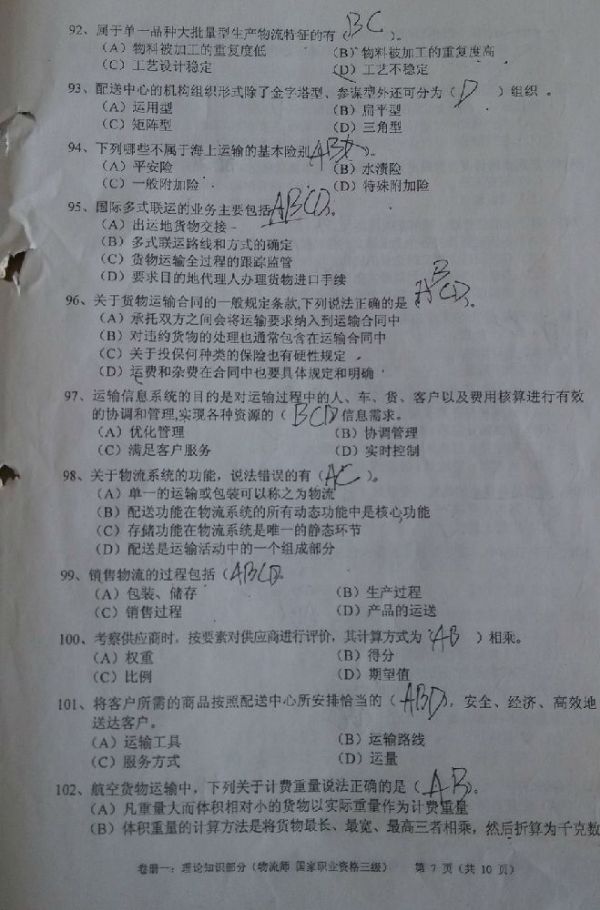 92、属于单一品种大批量型生产物流特征的有（BC）。
（A）物料被加工的重复度低 （B）物料被加工的重复度高
（C）工艺设计稳定 （D）工艺不稳定
93、配送中心的机构组织形式除了金字塔型、参谋型外还可分为（D ）组织 。
（A）运用型 （B）扁平型
（C）矩阵型 （D）三角型
94、下列哪些不属于海上运输的基本险别 。
（A）平安险 （B）水渍险
（C）一般附加险 （D）特殊附加险
95、国际多式联运的业务主要包括ABCD。
（A）出运地货物交接
（B）多式联运路线和方式的确定
（C）货物运输全过程的跟踪监管
（D）要求目的地代理人办理货物进口手续
96、关于货物运输合同的一般规定条款,下列说法正确的是（ABCD）。
（A）承托双方之间会将运输要求纳入到运输合同中
（B）对违约货物的处理也通常包含在运输合同中
（C）关于投保何种类的保险也有硬性规定
（D）运费和杂费在合同中也要具体规定和明确
97、运输信息系统的目的是对运输过程中的人、车、货、客户以及费用核算进行有效
的协调和管理,实现各种资源的（BCD）信息需求。
（A）优化管理 （B）协调管理
（C）满足客户服务 （D）实时控制
98、关于物流系统的功能，说法错误的有（AC）。
（A）单一的运输或包装可以称之为物流
（B）配送功能在物流系统的所有动态功能中是核心功能
（C）存储功能在物流系统是唯一的静态环节
（D）配送是运输活动中的一个组成部分
99、销售物流的过程包括（ABCD）。
（A）包装、储存 （B）生产过程
（C）销售过程 （D）产品的运送
100、考察供应商时，按要素对供应商进行评价，其计算方式为（AB ）相乘。
（A）权重 （B）得分
（C）比例 （D）期望值
101、将客户所需的商品按照配送中心所安排恰当的（ABD），安全、经济、高效地
送达客户。
（A）运输工具 （B）运输路线
（C）服务方式 （D）运量
102、航空货物运输中，下列关于计费重量说法正确的是（AB）。
（A）凡重量大而体积相对小的货物以实际重量作为计费重量
（B）体积重量的计算方法是将货物最长、最宽、最高三者相乘，然后折算为千克数
卷册一：理论知识部分（物流师 国家职业资格三级） 第 7 页（共 10 页）